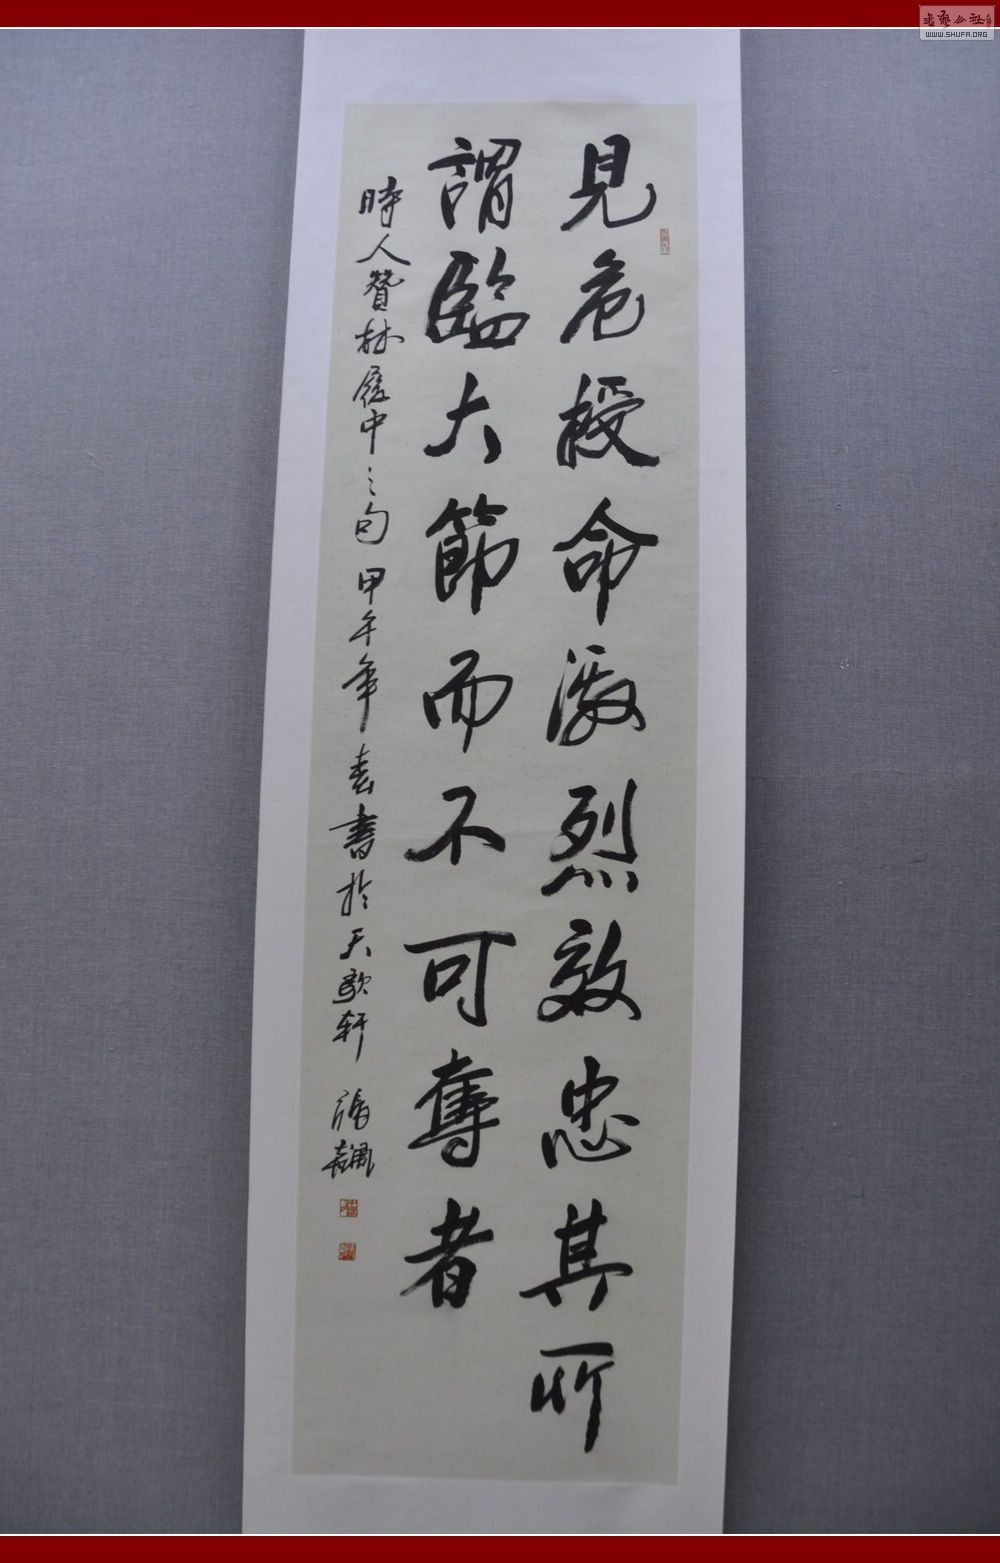 見危授命激烈效忠其所
謂臨大節而不可奪者
時人贊林履中之句甲午年春書於天歌軒
WWW.SHUFA.ORG